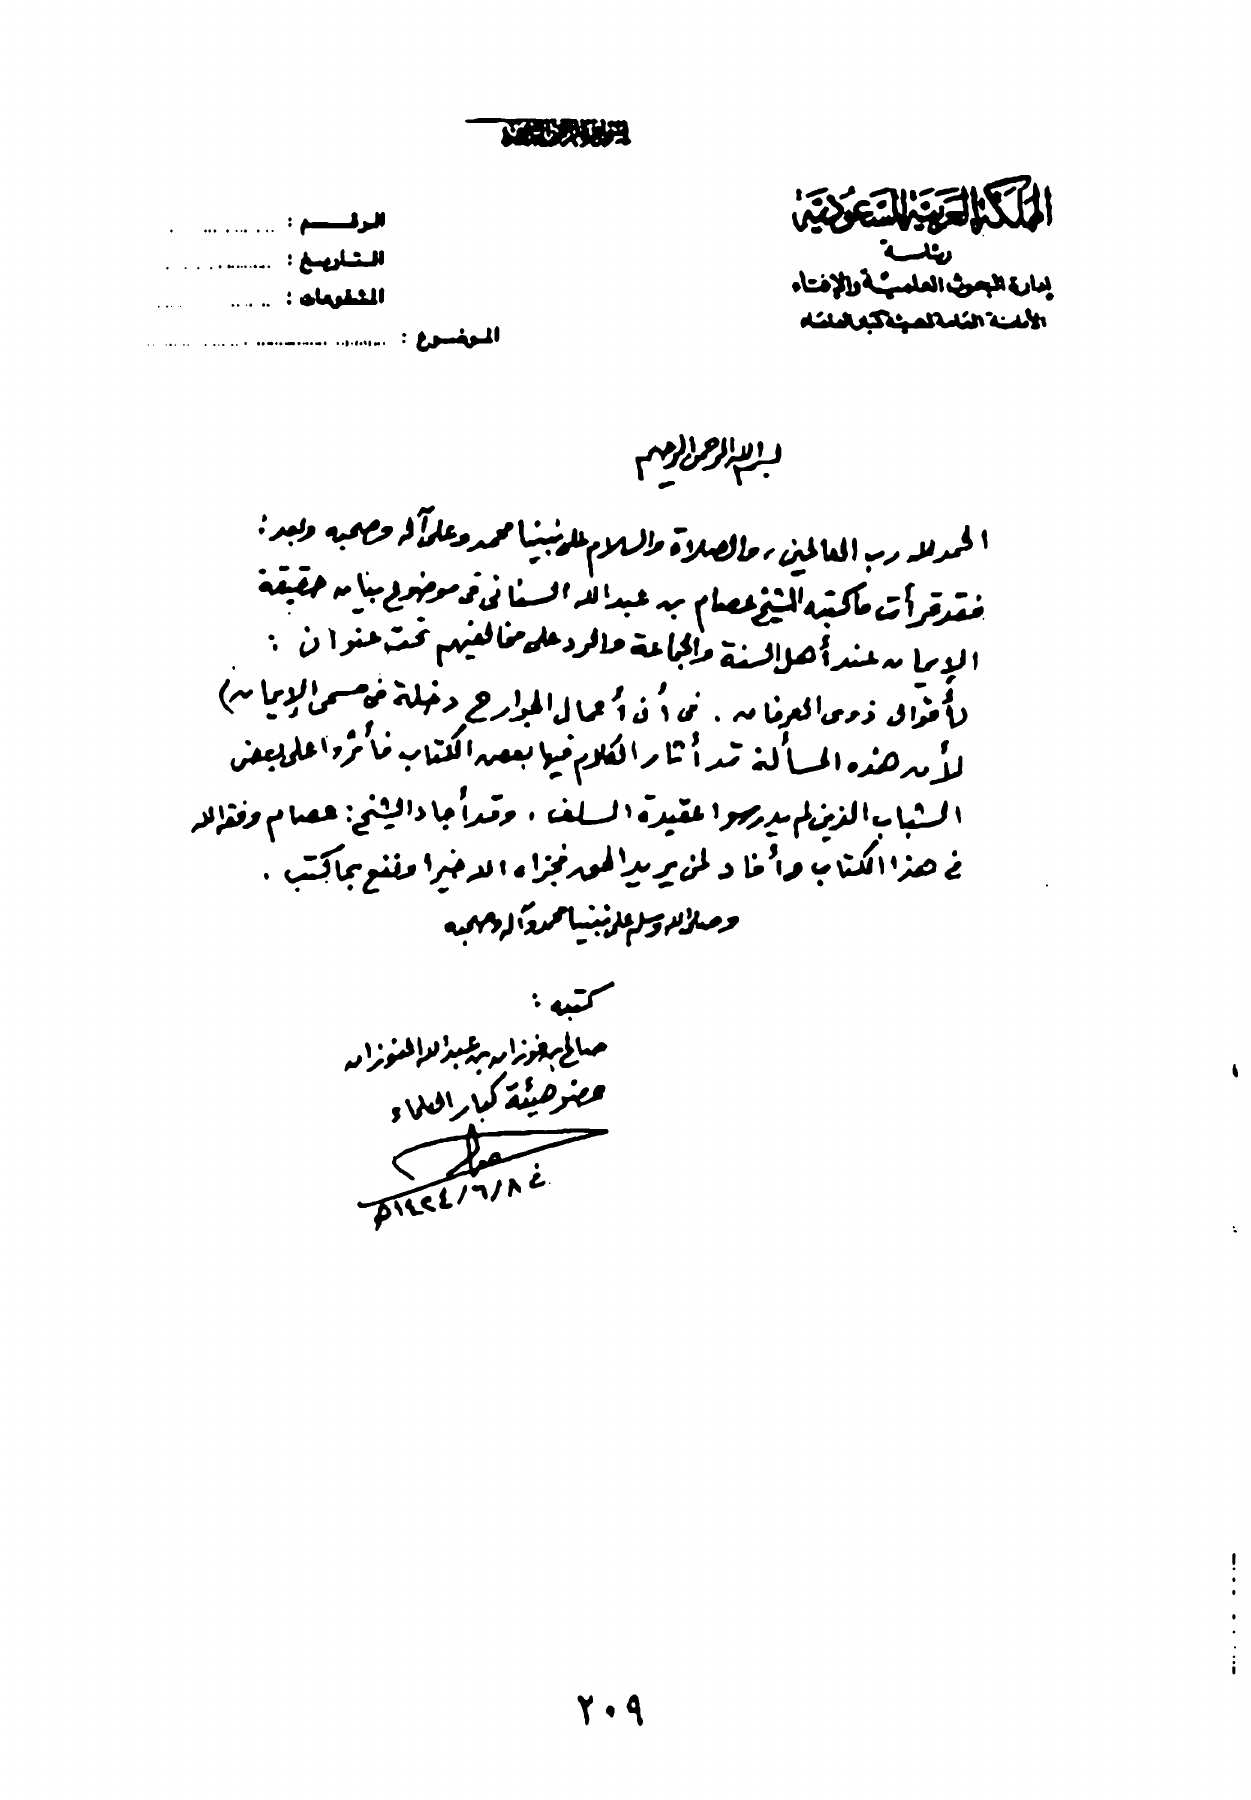 بسم الله الرحمن الرحيم
المملكة العربية السعودية
رئاسة
إدارة البحوث العلمية والإفتاء
الأمانة العامة لهيئة كبار العلماء
الرقم :
التاريخ :
المشفوعات :
الموضوع :
بسم الله الرحمن الرحيم
الحمد لله رب العالمين، والصلاة والسلام على نبينا محمد وعلى آله وصحبه وبعد :
فقد قرأت ما كتبه الشيخ عصام بن عبد الله السناني في موضوع بيان حقيقة
الإيمان عند أهل السنة والجماعة والرد على مخالفيهم تحت عنوان :
(أقوال ذوي العرفان . في أن أعمال الجوارح دخلة في مسمى الإيمان)
لأن هذه المسألة قد أثار الكلام فيها بعض الكتاب فأثروا على بعض
الشباب الذين لم يدرسوا عقيدة السلف . وقد أجاد الشيخ : عصام وفقه الله
في هذا الكتاب وأفاد لمن يريد الحق فجزاه الله خيرا ونفع بما كتب .
وصلى الله وسلم على نبينا محمد وآله وصحبه
كتبه :
صالح بن فوزان بن عبد الله الفوزان
عضو هيئة كبار العلماء
في ٨/٦/١٤٢٤هـ
٢٠٩